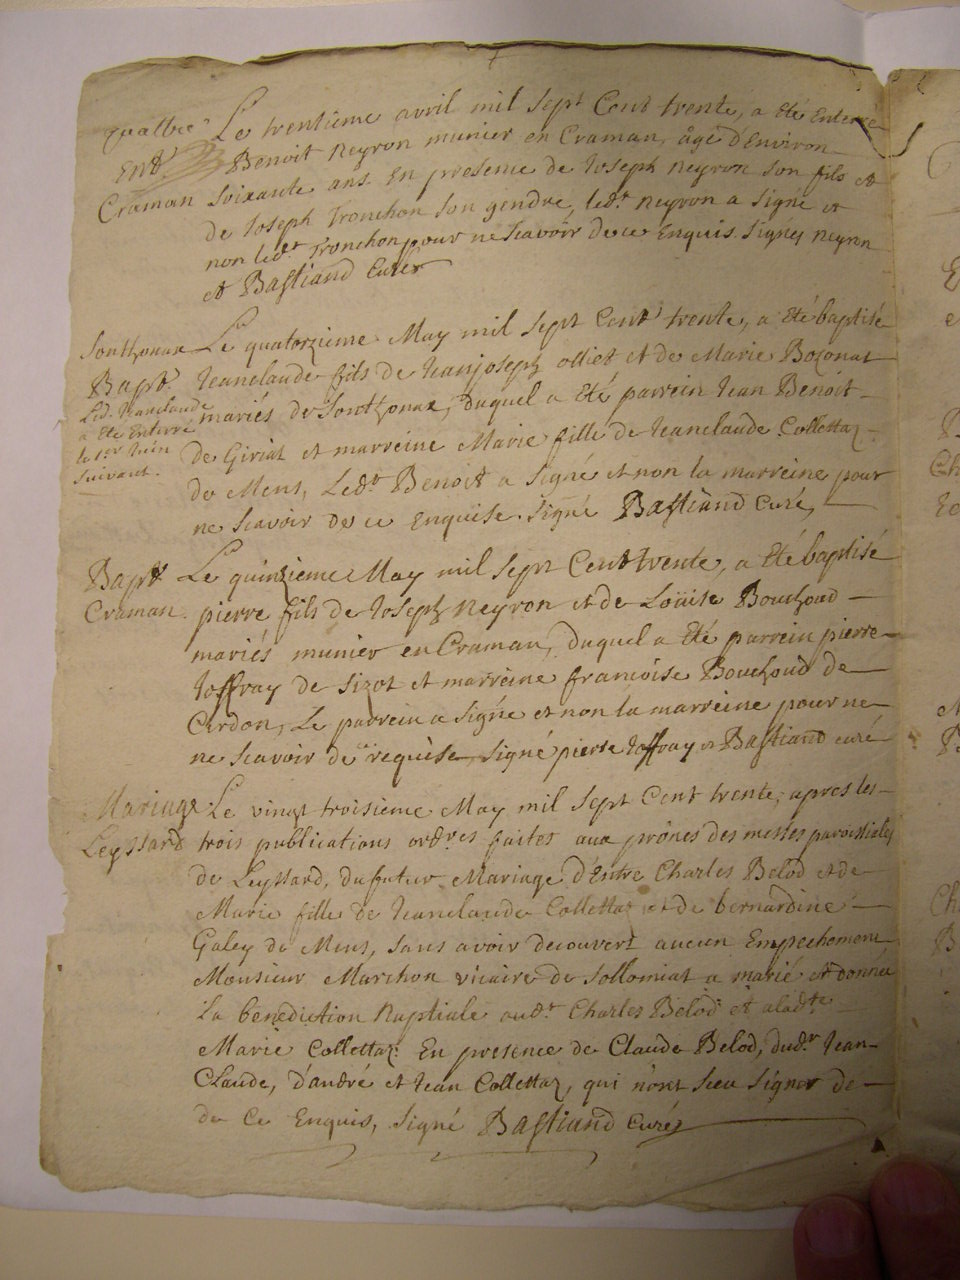 quattre Le trentieme avril mil sept Cent trente, a Eté Enterré
Ent. Benoit Neyron munier en Craman, âgé d'Environ
Craman soixante ans. En presence de Joseph Neyron son fils et
de Joseph Tronchon son gendre, led.t Neyron a signé et
non led.t Tronchon pour ne scavoir de ce Enquis. signés Neyron
et Bastiand Curé
Sonthonax Le quatorzieme May mil sept Cent trente, a Eté baptisé
Bapt. Jeanclaude fils de Jeanjoseph olliet et de Marie Bozonat
Led. Jeanclaude
mariés de Sonthonax, duquel a Eté parrein Jean Benoit
a Eté Enterré
de Giriat et marreine Marie fille de Jeanclaude Collettaz
le 1er Juin
suivant.
de Mens, Led.t Benoit a signé et non la marreine pour
ne scavoir de ce Enquise. signé Bastiand Curé,
Bapt Le quinzieme May mil sept Cent trente, a Eté baptisé
Craman. pierre fils de Joseph Neyron et de Loüise Bouchoud
mariés munier en Craman, duquel a Eté parrein pierre
Joffray de sizot et marreine francoise Bouchoud de
Cerdon, Le parrein a signé et non la marreine pour ne
ne scavoir de requise signé pierre Joffray et Bastiand curé
Mariage Le vingt troisieme May mil sept Cent trente, apres les
Leyssard trois publications ord.res faites aux prônes des messes paroissiales
de Leyssard, du futur Mariage d'Entre Charles Belod et de
Marie fille de Jeanclaude Collettaz et de bernardine
Galey de Mens, sans avoir decouvert aucun Empechement
Monsieur Marchon vicaire de sollomiat a marié et donnée
La benediction Nuptiale aud.t Charles Belod et a lad.te
Marie Collettaz. En presence de Claude Belod, dud.t Jean-
Claude, d'andré et Jean Collettaz, qui n'ont sceu signer de
de Ce Enquis, signé Bastiand curé